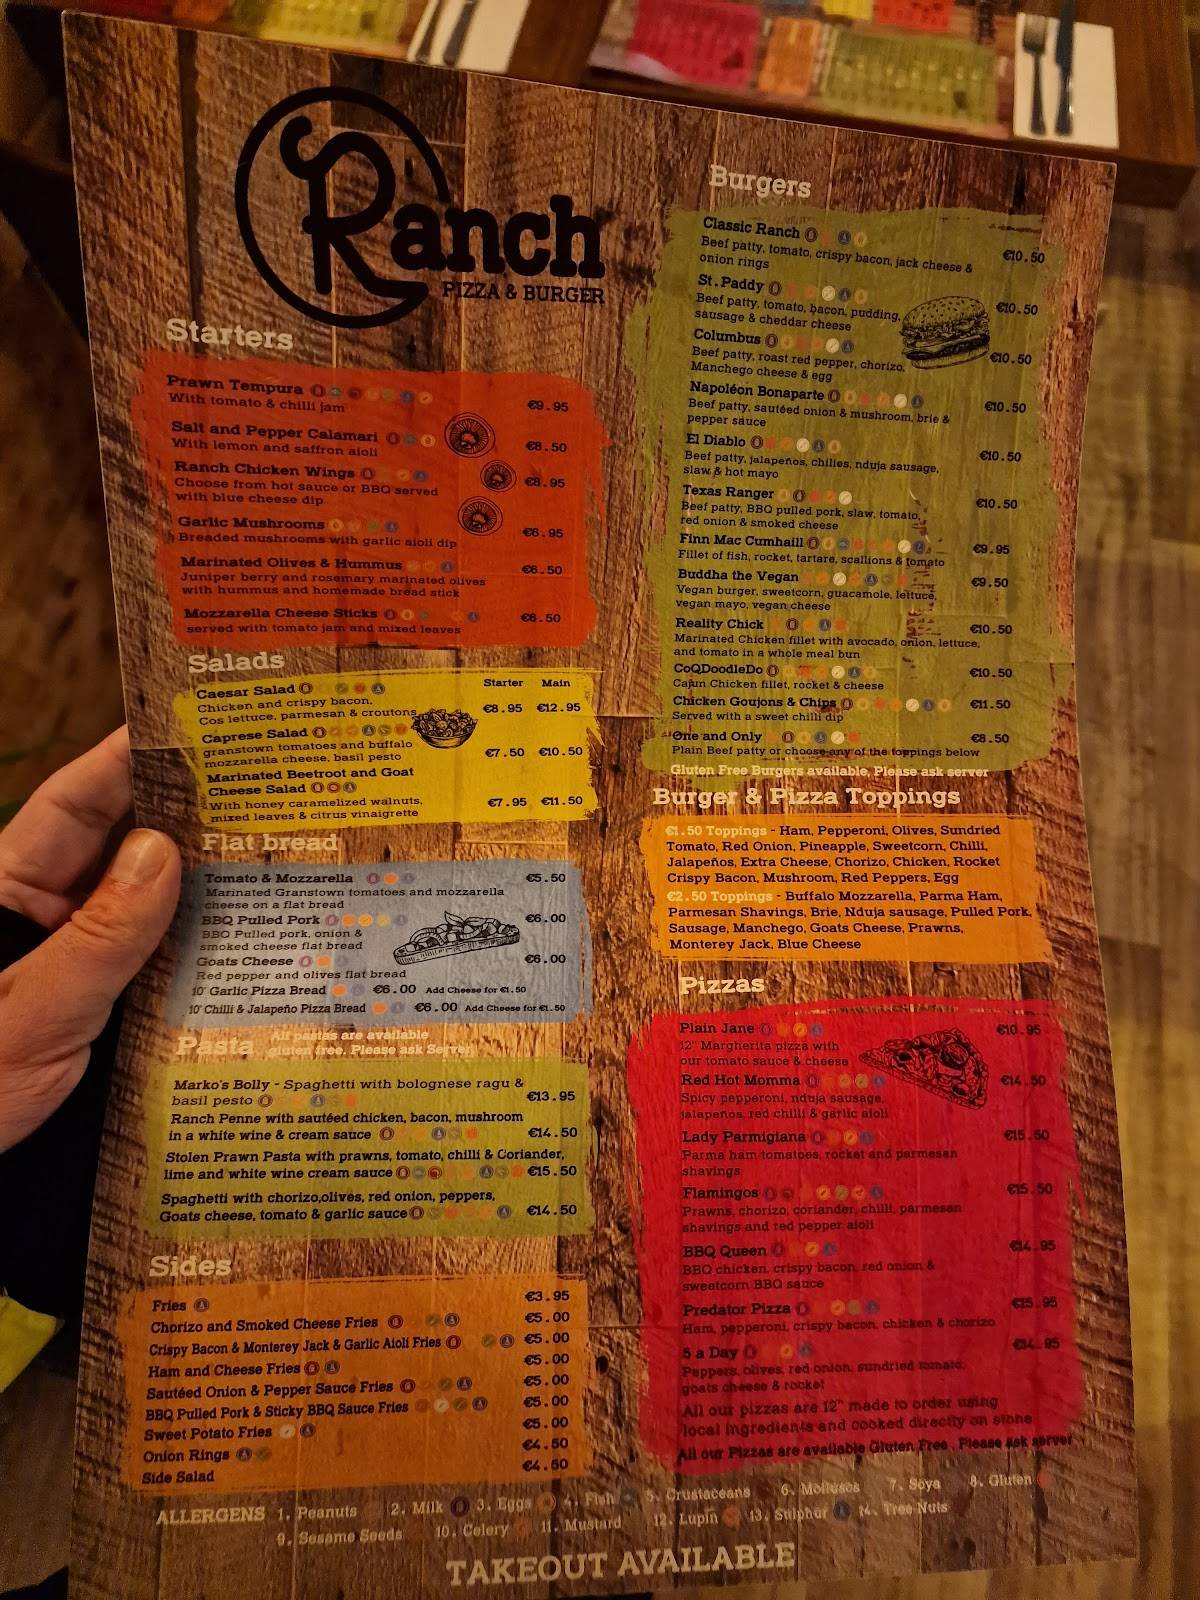 Ranch
PIZZA & BURGER
Starters
Prawn Tempura
With tomato & chilli jam
€9.95
Salt and Pepper Calamari
With lemon and saffron aioli
€8.50
Ranch Chicken Wings
Choose from hot sauce or BBQ served
with blue cheese dip
€8.95
Garlic Mushrooms
Breaded mushrooms with garlic aioli dip
€6.95
Marinated Olives & Hummus
Juniper berry and rosemary marinated olives
with hummus and homemade bread stick
€6.50
Mozzarella Cheese Sticks
served with tomato jam and mixed leaves
€6.50
Salads
Starter Main
Caesar Salad
Chicken and crispy bacon,
Cos lettuce, parmesan & croutons
€8.95 €12.95
Caprese Salad
granstown tomatoes and buffalo
mozzarella cheese, basil pesto
€7.50 €10.50
Marinated Beetroot and Goat
Cheese Salad
With honey caramelized walnuts,
mixed leaves & citrus vinaigrette
€7.95 €11.50
Flat bread
Tomato & Mozzarella
€5.50
Marinated Granstown tomatoes and mozzarella
cheese on a flat bread
BBQ Pulled Pork
€6.00
BBQ Pulled pork, onion &
smoked cheese flat bread
Goats Cheese
€6.00
Red pepper and olives flat bread
10' Garlic Pizza Bread €6.00 Add Cheese for €1.50
10' Chilli & Jalapeño Pizza Bread €6.00 Add Cheese for €1.50
Pasta
All pastas are available
gluten free. Please ask Server
Marko's Bolly - Spaghetti with bolognese ragu &
basil pesto
€13.95
Ranch Penne with sautéed chicken, bacon, mushroom
in a white wine & cream sauce
€14.50
Stolen Prawn Pasta with prawns, tomato, chilli & Coriander,
lime and white wine cream sauce
€15.50
Spaghetti with chorizo,olives, red onion, peppers,
Goats cheese, tomato & garlic sauce
€14.50
Sides
Fries
€3.95
Chorizo and Smoked Cheese Fries
€5.00
Crispy Bacon & Monterey Jack & Garlic Aioli Fries
€5.00
Ham and Cheese Fries
€5.00
Sautéed Onion & Pepper Sauce Fries
€5.00
BBQ Pulled Pork & Sticky BBQ Sauce Fries
€5.00
Sweet Potato Fries
€5.00
Onion Rings
€4.50
Side Salad
€4.50
Burgers
Classic Ranch
Beef patty, tomato, crispy bacon, jack cheese &
onion rings
€10.50
St. Paddy
Beef patty, tomato, bacon, pudding,
sausage & cheddar cheese
€10.50
Columbus
Beef patty, roast red pepper, chorizo,
Manchego cheese & egg
€10.50
Napoléon Bonaparte
Beef patty, sautéed onion & mushroom, brie &
pepper sauce
€10.50
El Diablo
Beef patty, jalapeños, chilies, nduja sausage,
slaw & hot mayo
€10.50
Texas Ranger
Beef patty, BBQ pulled pork, slaw, tomato,
red onion & smoked cheese
€10.50
Finn Mac Cumhaill
€9.95
Fillet of fish, rocket, tartare, scallions & tomato
Buddha the Vegan
€9.50
Vegan burger, sweetcorn, guacamole, lettuce,
vegan mayo, vegan cheese
Reality Chick
€10.50
Marinated Chicken fillet with avocado, onion, lettuce,
and tomato in a whole meal bun
CoQDoodleDo
€10.50
Cajun Chicken fillet, rocket & cheese
Chicken Goujons & Chips
€11.50
Served with a sweet chilli dip
One and Only
€8.50
Plain Beef patty or choose any of the toppings below
Gluten Free Burgers available, Please ask server
Burger & Pizza Toppings
€1.50 Toppings - Ham, Pepperoni, Olives, Sundried
Tomato, Red Onion, Pineapple, Sweetcorn, Chilli,
Jalapeños, Extra Cheese, Chorizo, Chicken, Rocket
Crispy Bacon, Mushroom, Red Peppers, Egg
€2.50 Toppings - Buffalo Mozzarella, Parma Ham,
Parmesan Shavings, Brie, Nduja sausage, Pulled Pork,
Sausage, Manchego, Goats Cheese, Prawns,
Monterey Jack, Blue Cheese
Pizzas
Plain Jane
€10.95
12" Margherita pizza with
our tomato sauce & cheese
Red Hot Momma
€14.50
Spicy pepperoni, nduja sausage,
jalapenos, red chilli & garlic aioli
Lady Parmigiana
€15.50
Parma ham tomatoes, rocket and parmesan
shavings
Flamingos
€15.50
Prawns, chorizo, coriander, chilli, parmesan
shavings and red pepper aioli
BBQ Queen
€14.95
BBQ chicken, crispy bacon, red onion &
sweetcorn BBQ sauce
Predator Pizza
€15.95
Ham, pepperoni, crispy bacon, chicken & chorizo
5 a Day
€14.95
Peppers, olives, red onion, sundried tomato,
goats cheese & rocket
All our pizzas are 12" made to order using
local ingredients and cooked directly on stone
All our Pizzas are available Gluten Free. Please ask server
ALLERGENS 1. Peanuts 2. Milk 3. Eggs 4. Fish 5. Crustaceans 6. Molluscs 7. Soya 8. Gluten
9. Sesame Seeds 10. Celery 11. Mustard 12. Lupin 13. Sulphur 14. Tree Nuts
TAKEOUT AVAILABLE